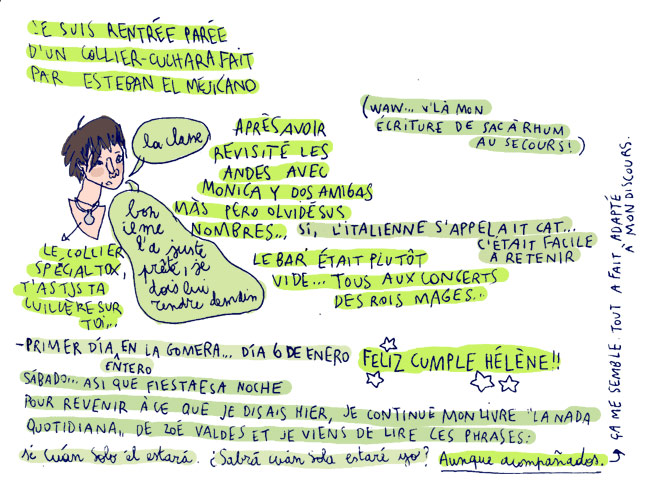 JE SUIS RENTRÉE PARÉE
D'UN COLLIER-CUCHARA FAIT
PAR ESTEBAN EL MEJICANO
(WAW... V'LÀ MON
ÉCRITURE DE SAC À RHUM
AU SECOURS!)
la classe
APRÈS AVOIR
REVISITÉ LES
ANDES AVEC
MONICA Y DOS AMIGAS
MÀS PERO OLVIDÉ SUS
NOMBRES... SI, L'ITALIENNE S'APPELAIT CAT...
C'ÉTAIT FACILE
À RETENIR
bon
il me
l'a juste
prêté, je
dois lui
rendre demain
LE COLLIER
SPÉCIAL TOX,
T'AS TJS TA
CUILLÈRE SUR
TOI...
LE BAR ÉTAIT PLUTÔT
VIDE... TOUS AUX CONCERTS
DES ROIS MAGES...
-PRIMER DÍA EN LA GOMERA... DÍA 6 DE ENERO
ENTERO
FELIZ CUMPLE HÉLÈNE!!
SÁBADO... ASI QUE FIESTA ESA NOCHE
POUR REVENIR À CE QUE JE DISAIS HIER, JE CONTINUE MON LIVRE "LA NADA
QUOTIDIANA" DE ZOÉ VALDES ET JE VIENS DE LIRE CES PHRASES:
si cuán solo él estará. ¿Sabrá cuán sola estaré yo? Aunque acompañados.
→ ÇA ME SEMBLE TOUT A FAIT ADAPTÉ
À MON DISCOURS.